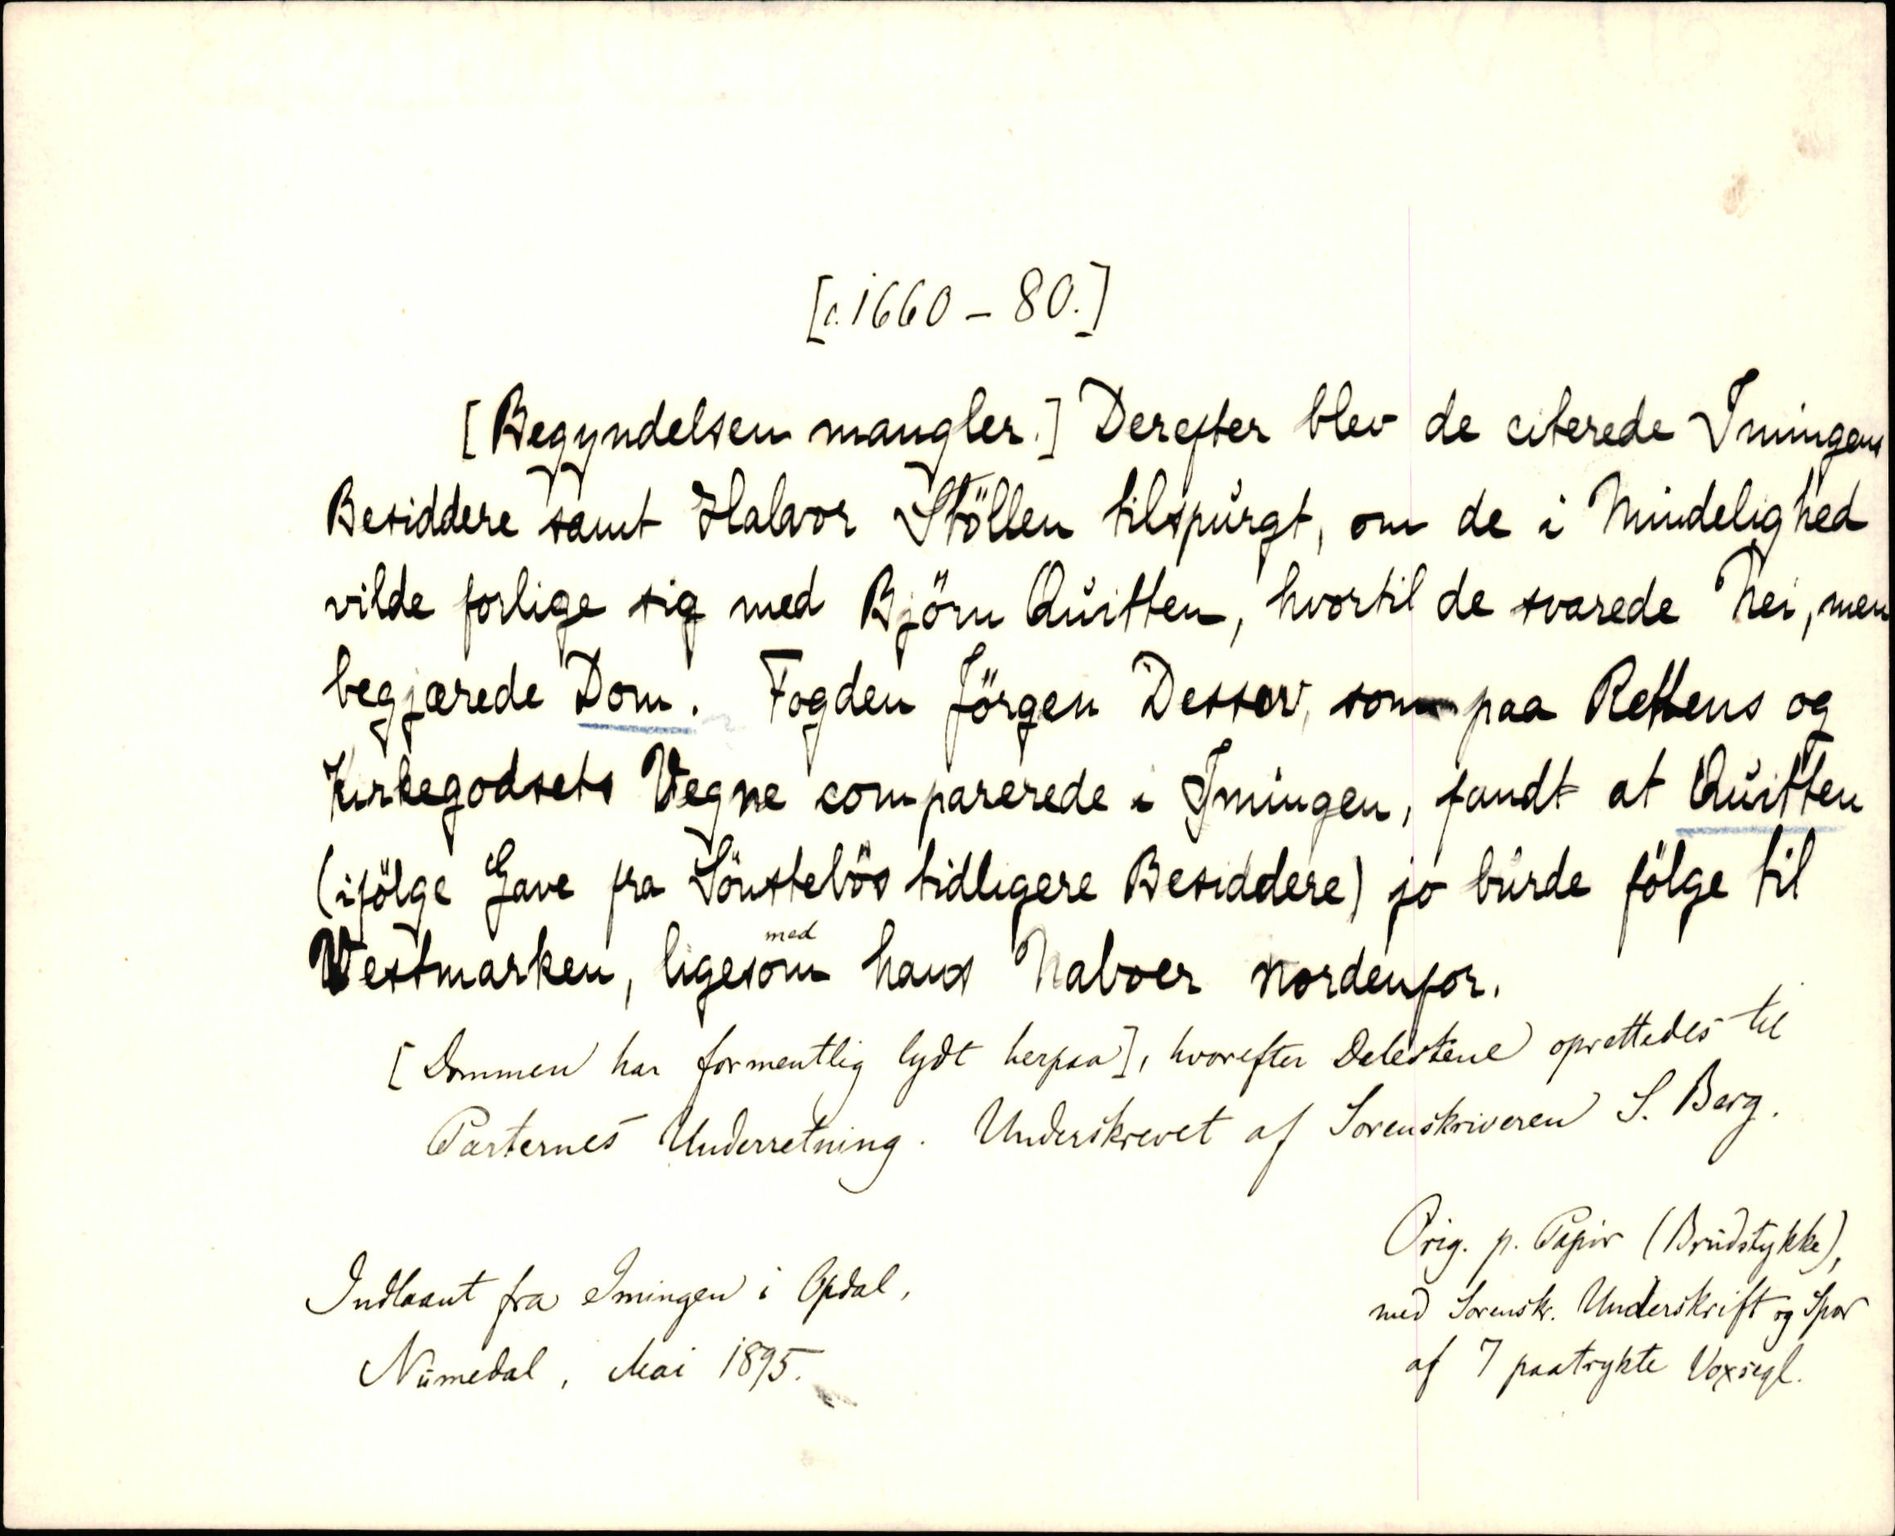 [c. 1660 – 80.]
[Begyndelsen mangler.] Derefter blev de citerede Imingens
Besiddere samt Halavor Stöllen tilspurgt, om de i Mindelighed
vilde forlige sig med Björn Quitten, hvortil de svarede Nei, men
begjærede Dom. Fogden Jörgen Desser, som paa Rettens og
Kirkegodsets Vegne comparerede i Imingen, fandt at Quitten
(ifölge Gave fra Sönstebös tidligere Besiddere) jo burde fölge til
Vestmarken, ligesom med hans Naboer nordenfor.
[Dommen har formentlig lydt herpaa], hvorefter Delestene oprettedes til
Parternes Underretning. Underskrevet af Sorenskriveren S. Berg.
Orig. p. Papir (Brudstykke),
med Sorenskr. Underskrift og Spor
af 7 paatrykte Voxsegl.
Indlaant fra Imingen i Opdal,
Numedal, Mai 1895.